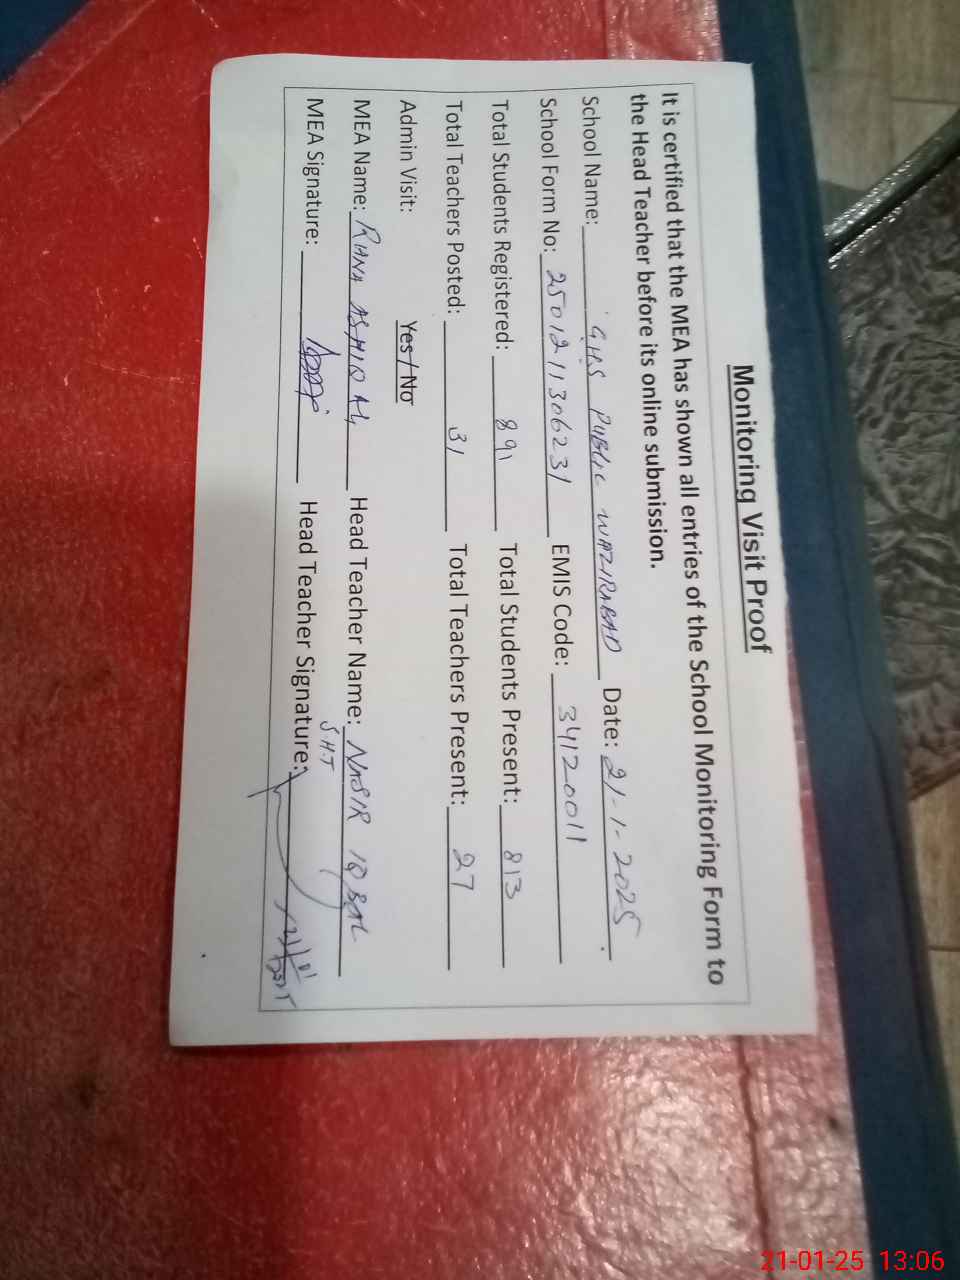 Monitoring Visit Proof
It is certified that the MEA has shown all entries of the School Monitoring Form to
the Head Teacher before its online submission.
School Name: GHS PUBLIC WAZIRABAD Date: 21-1-2025
School Form No: 2501211306231 EMIS Code: 34120011
Total Students Registered: 891 Total Students Present: 813
Total Teachers Posted: 31 Total Teachers Present: 27
Admin Visit: Yes / No
MEA Name: RANA ASHIQ ALI Head Teacher Name: NASIR IQBAL
S.H.T
MEA Signature: Head Teacher Signature:
21-01-25 13:06